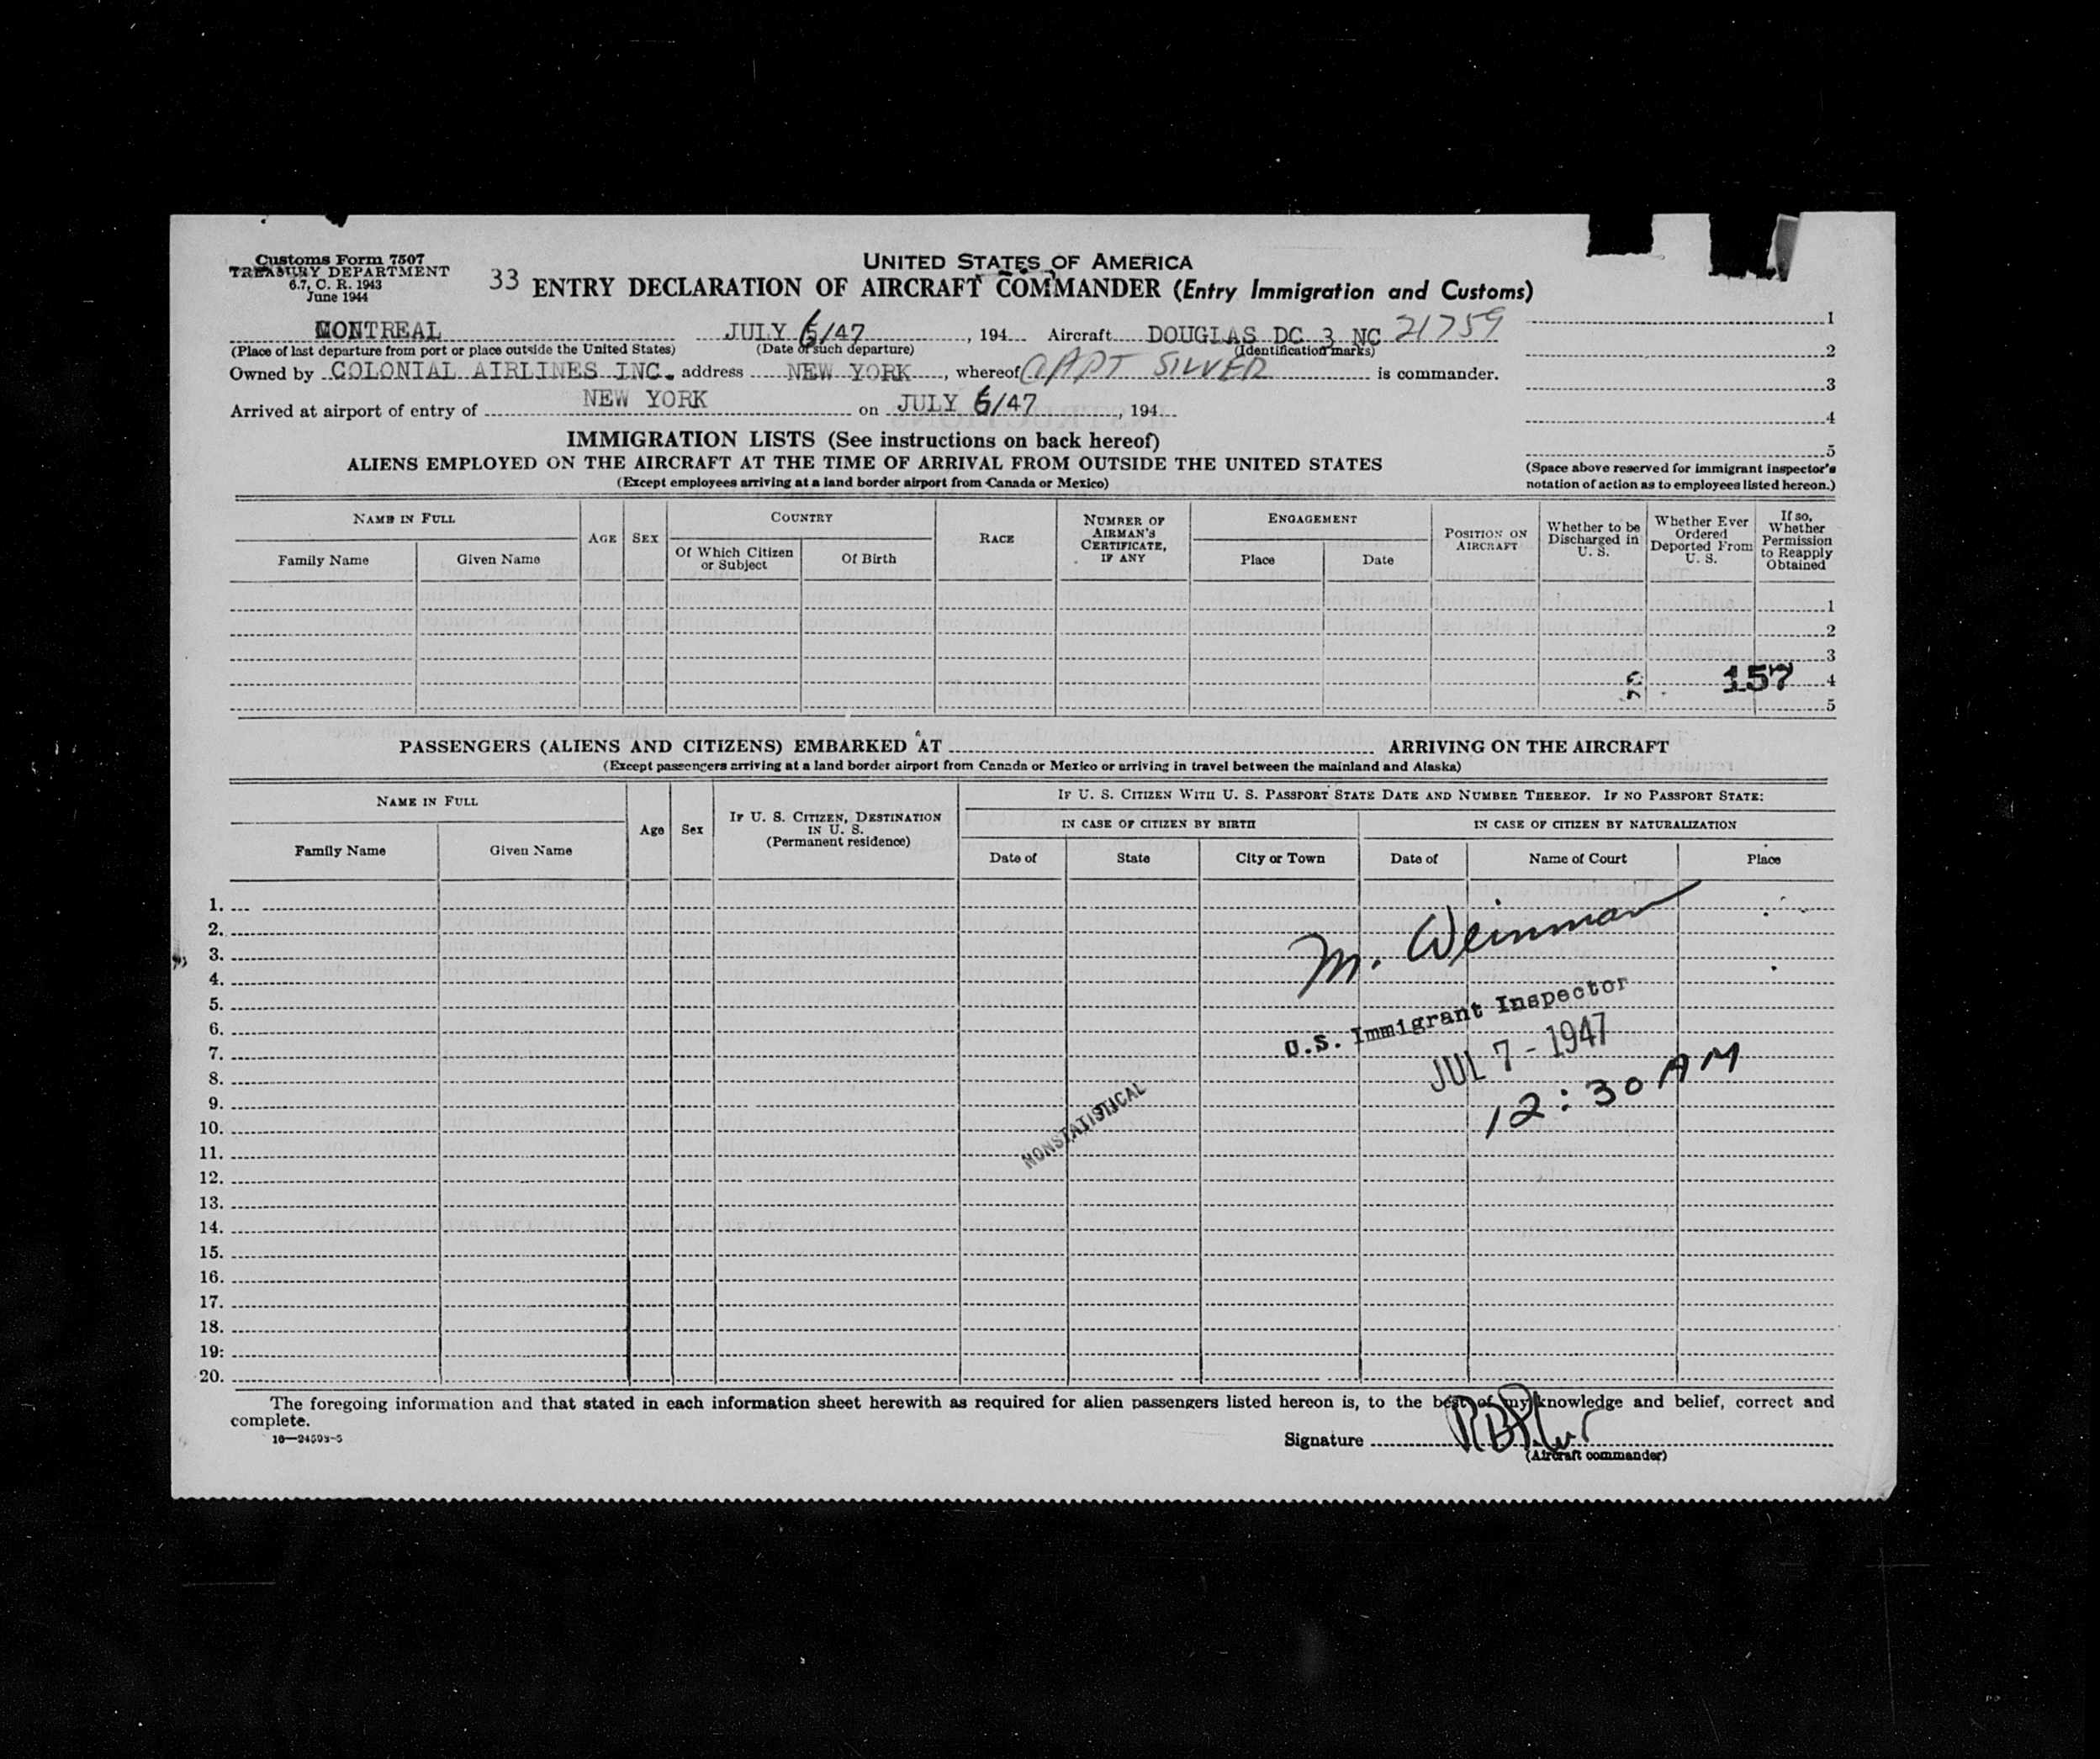 Customs Form 7507
TREASURY DEPARTMENT
6.7, C. R. 1943
June 1944
33
UNITED STATES OF AMERICA
ENTRY DECLARATION OF AIRCRAFT COMMANDER (Entry Immigration and Customs)
MONTREAL JULY 6/47, 194 Aircraft DOUGLAS DC 3 NC 21759
(Place of last departure from port or place outside the United States) (Date of such departure) (Identification marks)
Owned by COLONIAL AIRLINES INC. address NEW YORK, whereof CAPT SILVER is commander.
Arrived at airport of entry of NEW YORK on JULY 6/47, 194
1
2
3
4
5
(Space above reserved for immigrant inspector's
notation of action as to employees listed hereon.)
IMMIGRATION LISTS (See instructions on back hereof)
ALIENS EMPLOYED ON THE AIRCRAFT AT THE TIME OF ARRIVAL FROM OUTSIDE THE UNITED STATES
(Except employees arriving at a land border airport from Canada or Mexico)
NAME IN FULL
Family Name Given Name
AGE
SEX
COUNTRY
Of Which Citizen
or Subject
Of Birth
RACE
NUMBER OF
AIRMAN'S
CERTIFICATE,
IF ANY
ENGAGEMENT
Place Date
POSITION ON
AIRCRAFT
Whether to be
Discharged in
U. S.
Whether Ever
Ordered
Deported From
U. S.
If so,
Whether
Permission
to Reapply
Obtained
1
2
3
157 4
5
PASSENGERS (ALIENS AND CITIZENS) EMBARKED AT ARRIVING ON THE AIRCRAFT
(Except passengers arriving at a land border airport from Canada or Mexico or arriving in travel between the mainland and Alaska)
NAME IN FULL
Family Name Given Name
Age
Sex
IF U. S. CITIZEN, DESTINATION
IN U. S.
(Permanent residence)
IF U. S. CITIZEN WITH U. S. PASSPORT STATE DATE AND NUMBER THEREOF. IF NO PASSPORT STATE:
IN CASE OF CITIZEN BY BIRTH IN CASE OF CITIZEN BY NATURALIZATION
Date of State City or Town Date of Name of Court Place
1.
2.
3.
4.
5.
6.
7.
8.
9.
10.
11.
12.
13.
14.
15.
16.
17.
18.
19.
20.
M. Weinman
U.S. Immigrant Inspector
JUL 7 - 1947
12:30 AM
NONSTATISTICAL
The foregoing information and that stated in each information sheet herewith as required for alien passengers listed hereon is, to the best of my knowledge and belief, correct and
complete.
16—24593-5
Signature
(Aircraft commander)